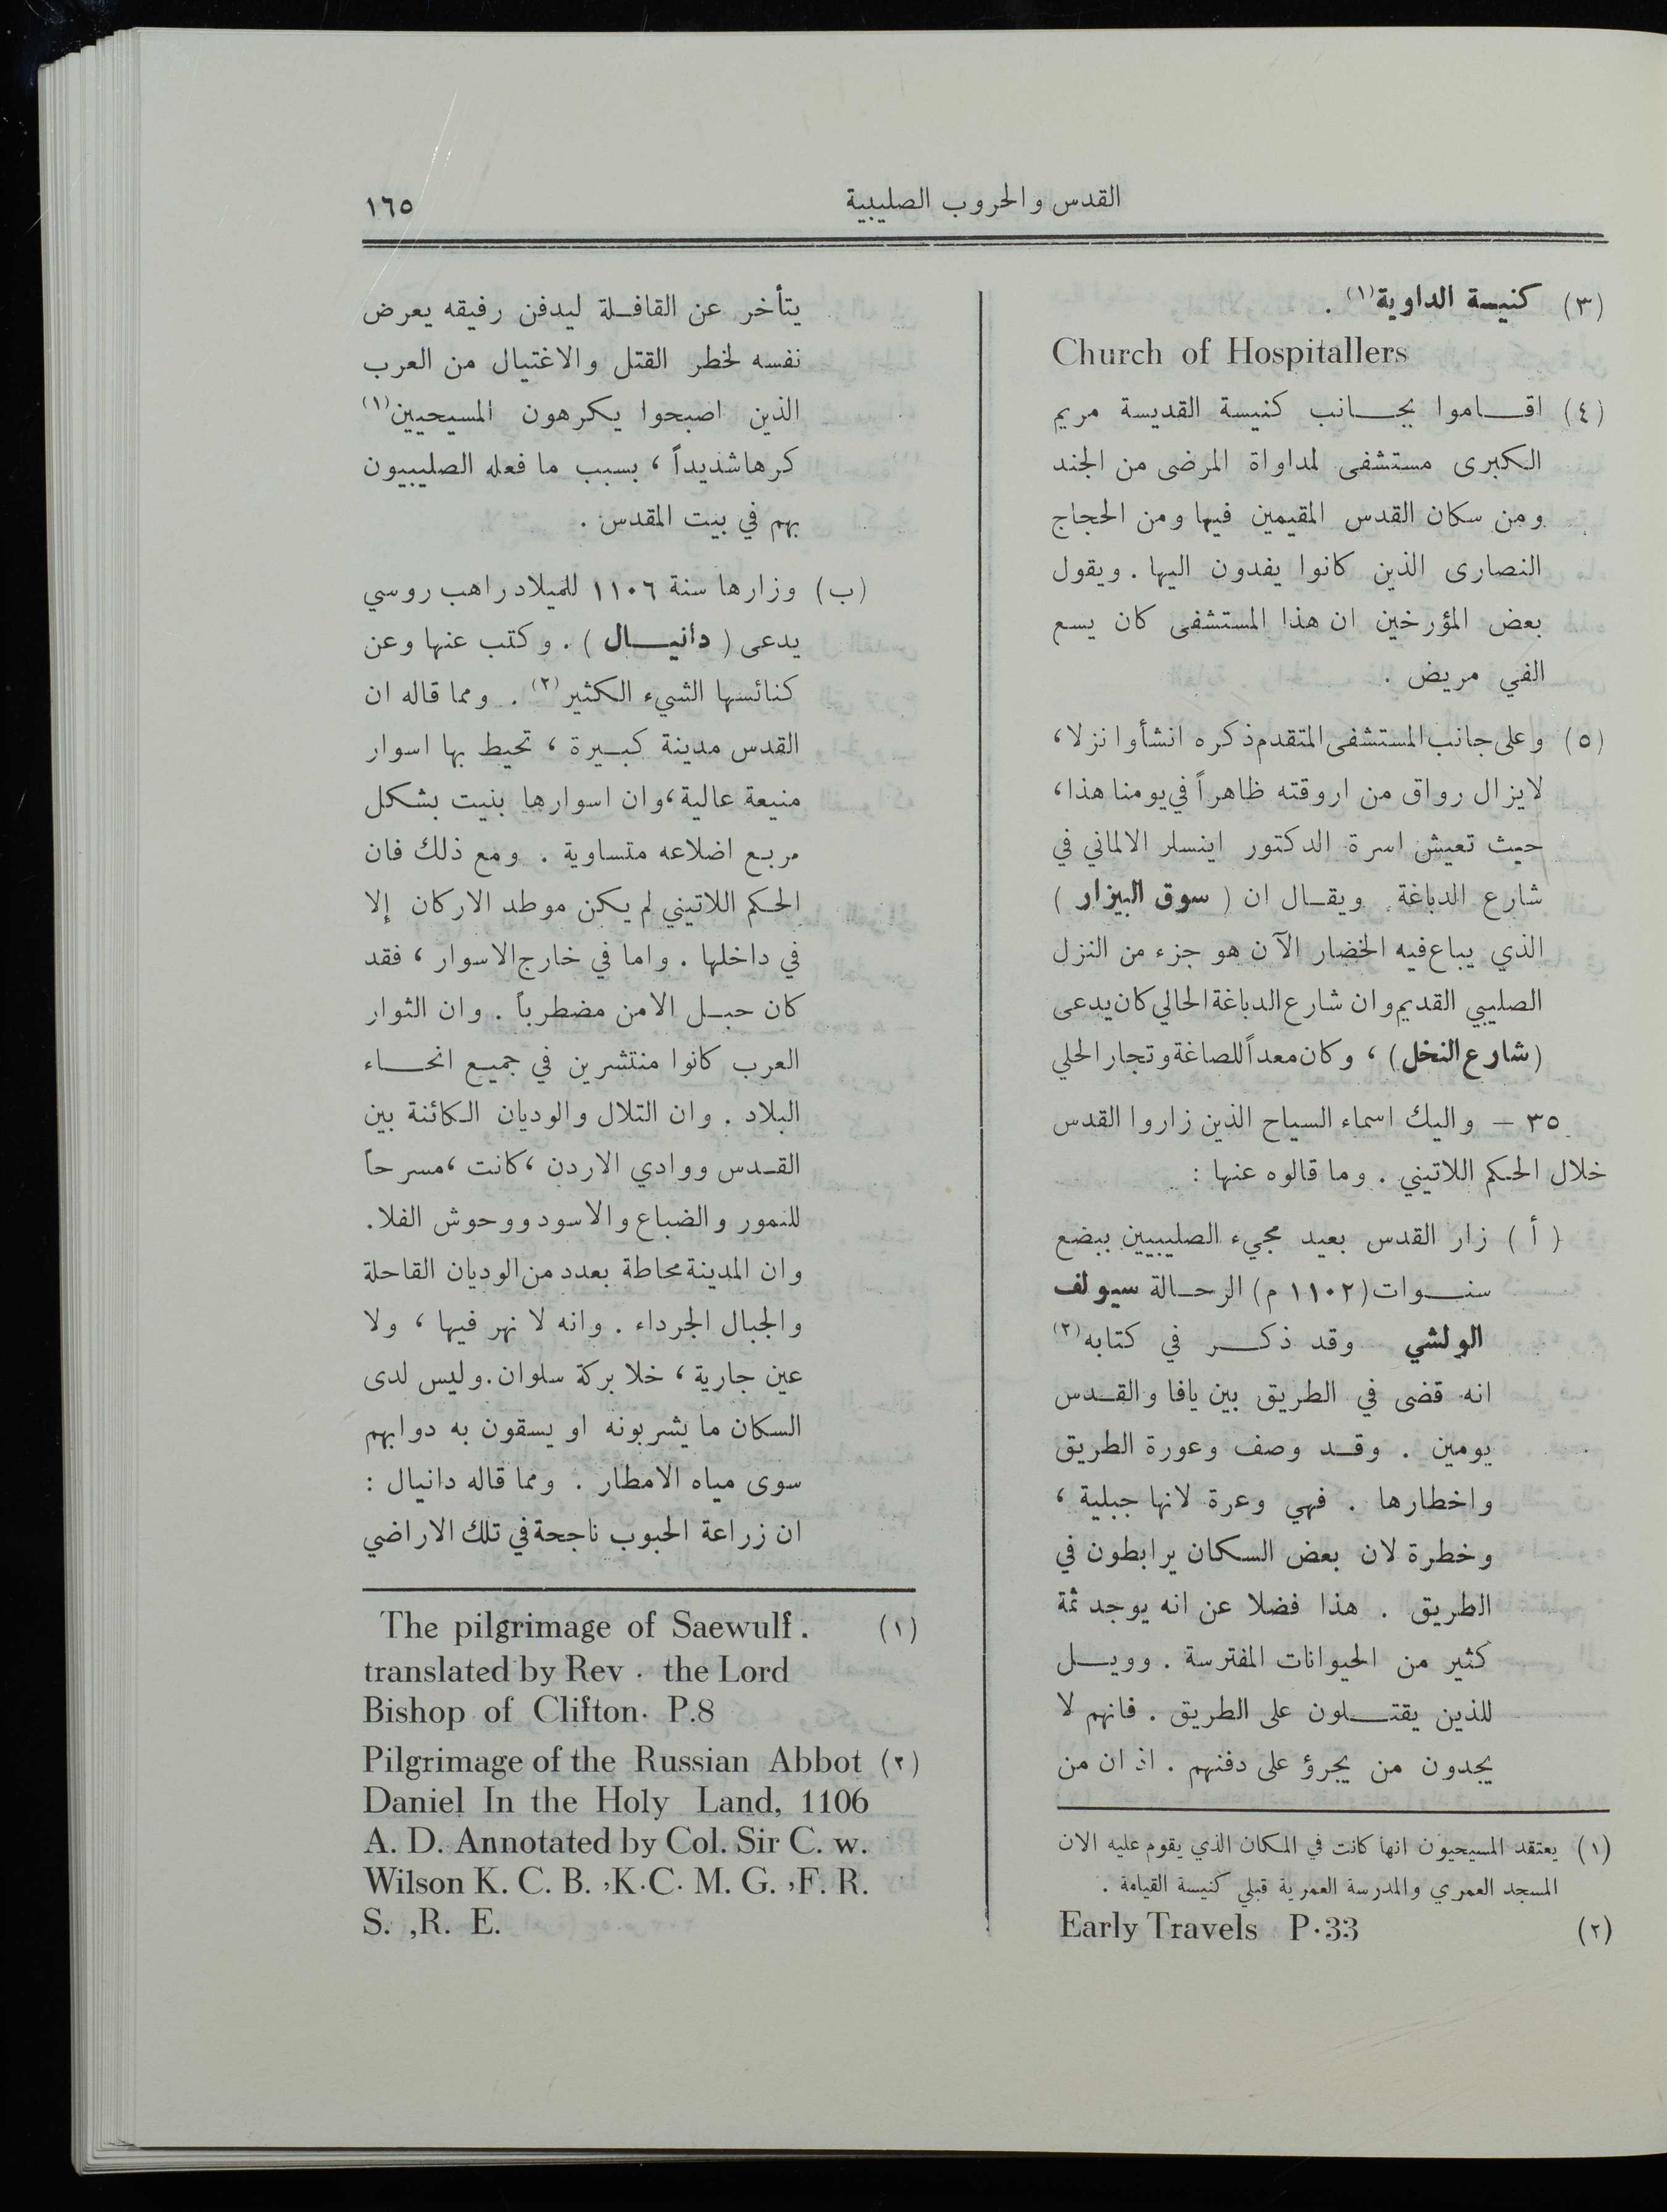 القدس والحروب الصليبية
١٦٥
(٣) كنيسة الداوية(١) .
Church of Hospitallers
(٤) اقاموا بجانب كنيسة القديسة مريم
الكبرى مستشفى لمداواة المرضى من الجند
ومن سكان القدس المقيمين فيها ومن الحجاج
النصارى الذين كانوا يفدون اليها . ويقول
بعض المؤرخين ان هذا المستشفى كان يسع
الفي مريض .
(٥) وعلى جانب المستشفى المتقدم ذكره انشأوا نزلا،
لايزال رواق من اروقته ظاهراً في يومنا هذا،
حيث تعيش اسرة الدكتور اينسلر الالماني في
شارع الدباغة. ويقال ان ( سوق البيزار )
الذي يباع فيه الخضار الآن هو جزء من النزل
الصليبي القديم وان شارع الدباغة الحالي كان يدعى
(شارع النخل) ، وكان معداً للصاغة وتجار الحلي
٣٥ – واليك اسماء السياح الذين زاروا القدس
خلال الحكم اللاتيني . وما قالوه عنها :
( أ ) زار القدس بعيد مجيء الصليبيين ببضع
سنوات (١١٠٢ م) الرحالة سيولف
الولشي وقد ذكر في كتابه(٢)
انه قضى في الطريق بين يافا والقدس
يومين . وقد وصف وعورة الطريق
واخطارها . فهي وعرة لانها جبلية ،
وخطرة لان بعض السكان يرابطون في
الطريق . هذا فضلا عن انه يوجد ثمة
كثير من الحيوانات المفترسة . وويل
للذين يقتلون على الطريق . فانهم لا
يجدون من يجرؤ على دفنهم . اذ ان من
(١) يعتقد المسيحيون انها كانت في المكان الذي يقوم عليه الان
المسجد العمري والمدرسة العمرية قبلي كنيسة القيامة .
(٢) Early Travels P.33
يتأخر عن القافلة ليدفن رفيقه يعرض
نفسه لخطر القتل والاغتيال من العرب
الذين اصبحوا يكرهون المسيحيين(١)
كرها شديداً ، بسبب ما فعله الصليبيون
بهم في بيت المقدس .
(ب) وزارها سنة ١١٠٦ للميلاد راهب روسي
يدعى ( دانيال ) . وكتب عنها وعن
كنائسها الشيء الكثير(٢) . ومما قاله ان
القدس مدينة كبيرة ، تحيط بها اسوار
منيعة عالية،وان اسوارها بنيت بشكل
مربع اضلاعه متساوية . ومع ذلك فان
الحكم اللاتيني لم يكن موطد الاركان إلا
في داخلها . واما في خارج الاسوار ، فقد
كان حبل الامن مضطرباً . وان الثوار
العرب كانوا منتشرين في جميع انحاء
البلاد . وان التلال والوديان الكائنة بين
القدس ووادي الاردن ،كانت ،مسرحاً
للنمور والضباع والاسود ووحوش الفلا.
وان المدينة محاطة بعدد من الوديان القاحلة
والجبال الجرداء . وانه لا نهر فيها ، ولا
عين جارية ، خلا بركة سلوان . وليس لدى
السكان ما يشربونه او يسقون به دوابهم
سوى مياه الامطار . ومما قاله دانيال :
ان زراعة الحبوب ناجحة في تلك الاراضي
(١) The pilgrimage of Saewulf .
translated by Rev . the Lord
Bishop of Clifton. P.8
(٢) Pilgrimage of the Russian Abbot
Daniel In the Holy Land, 1106
A. D. Annotated by Col. Sir C. w.
Wilson K. C. B. ,K.C. M. G. ,F. R.
S. ,R. E.